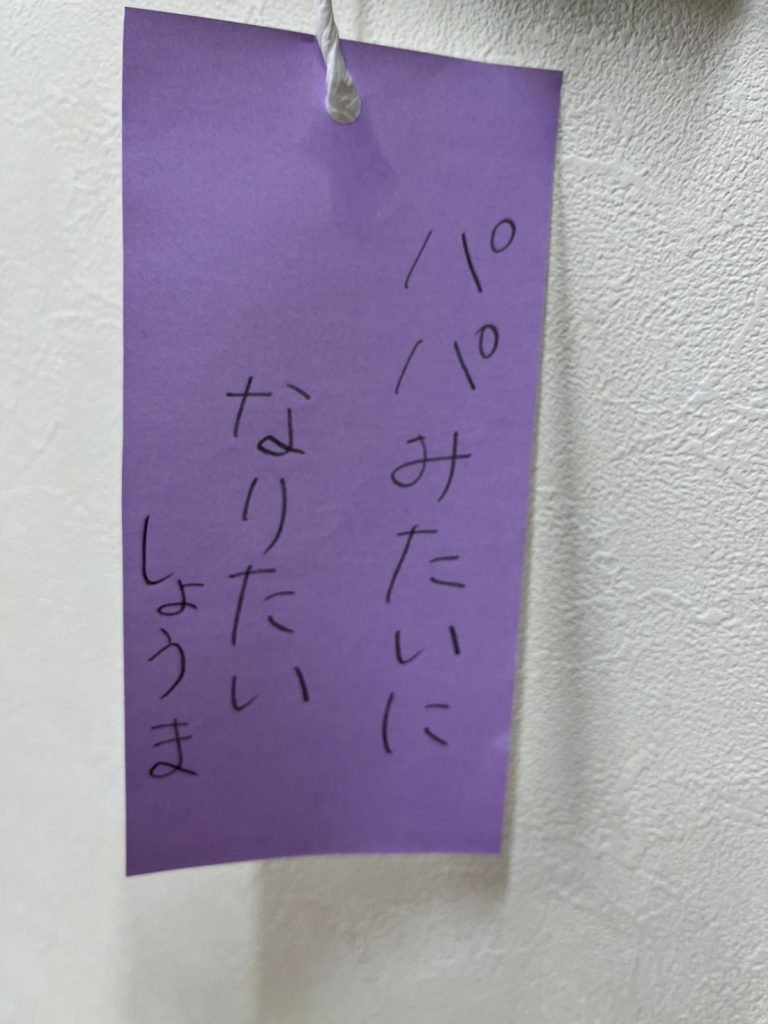 パパみたいに
なりたい
しょうま